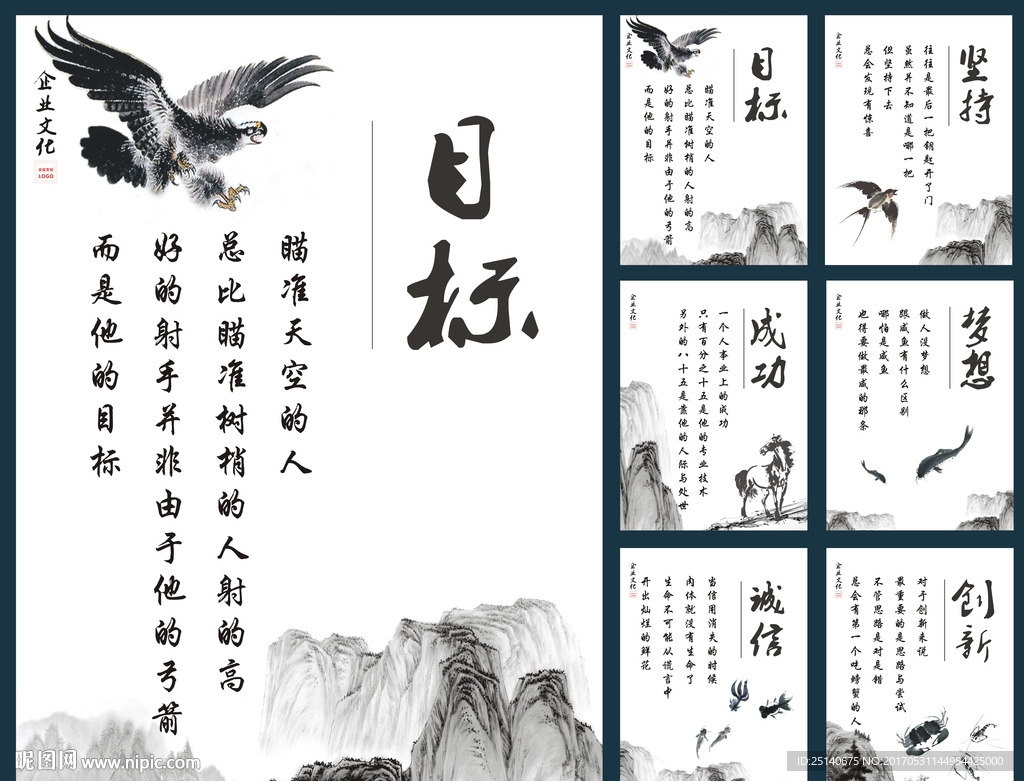 企业文化
企业文化
LOGO
目标
瞄准天空的人
总比瞄准树梢的人射的高
好的射手并非由于他的弓箭
而是他的目标
企业文化
目标
瞄准天空的人
总比瞄准树梢的人射的高
好的射手并非由于他的弓箭
而是他的目标
企业文化
坚持
往往是最后一把钥匙开了门
虽然并不知道是哪一把
但坚持下去
总会发现有惊喜
企业文化
成功
一个人事业上的成功
只有百分之十五是他的专业技术
另外的八十五是靠他的人际与处世
企业文化
梦想
做人没梦想
跟咸鱼有什么区别
哪怕是咸鱼
也得要做最咸的那条
企业文化
诚信
当信用消失的时候
肉体就没有生命了
生命不可能从谎言中
开出灿烂的鲜花
企业文化
创新
对于创新来说
最重要的是思路与尝试
不管思路是对是错
总会有第一个吃螃蟹的人
昵图网 www.nipic.com
ID:25140675 NO:20170531144954425000